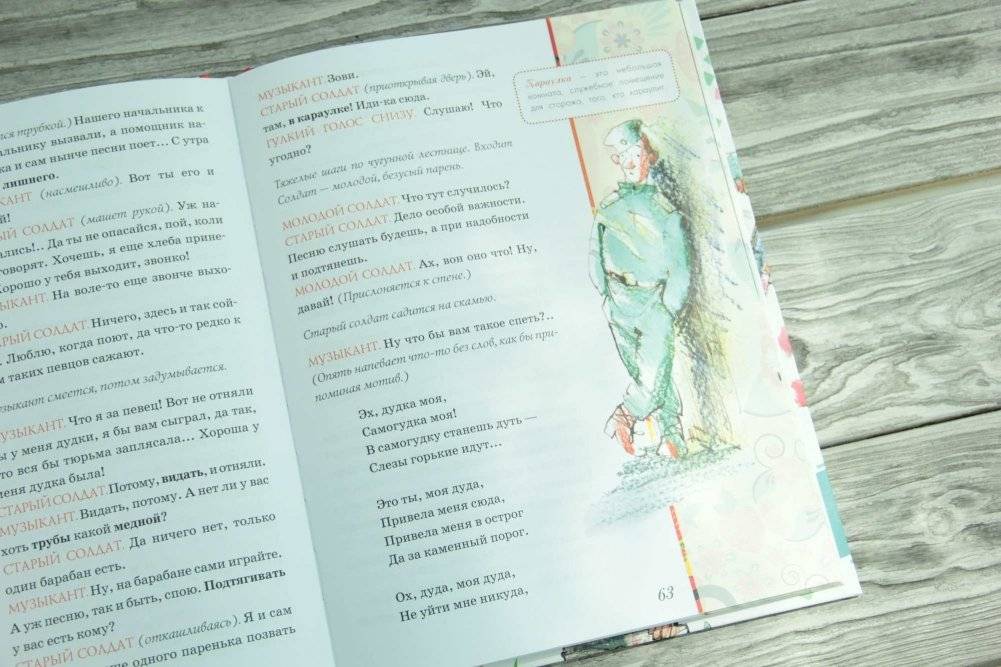 ся трубкой.) Нашего начальника к
альнику вызвали, а помощник на-
ка и сам нынче песни поет... С утра
лишнего.
КАНТ (насмешливо). Вот ты его и
й!
ЫЙ СОЛДАТ (машет рукой). Уж на-
ались!.. Да ты не опасайся, пой, коли
говорят. Хочешь, я еще хлеба прине-
Хорошо у тебя выходит, звонко!
ЫКАНТ. На воле-то еще звонче выхо-
о.
АРЫЙ СОЛДАТ. Ничего, здесь и так сой-
. Люблю, когда поют, да что-то редко к
м таких певцов сажают.
зыкант смеется, потом задумывается.
УЗЫКАНТ. Что я за певец! Вот не отняли
ы у меня дудки, я бы вам сыграл, да так,
то вся бы тюрьма заплясала... Хороша у
меня дудка была!
СТАРЫЙ СОЛДАТ. Потому, видать, и отняли.
МУЗЫКАНТ. Видать, потому. А нет ли у вас
хоть трубы какой медной?
СТАРЫЙ СОЛДАТ. Да ничего нет, только
один барабан есть.
МУЗЫКАНТ. Ну, на барабане сами играйте.
А уж песню, так и быть, спою. Подтягивать
у вас есть кому?
СТАРЫЙ СОЛДАТ (откашливаясь). Я и сам
ще одного паренька позвать
МУЗЫКАНТ. Зови.
СТАРЫЙ СОЛДАТ (приоткрывая дверь). Эй,
там, в караулке! Иди-ка сюда.
ГУЛКИЙ ГОЛОС СНИЗУ. Слушаю! Что
угодно?
Тяжелые шаги по чугунной лестнице. Входит
Солдат — молодой, безусый парень.
МОЛОДОЙ СОЛДАТ. Что тут случилось?
СТАРЫЙ СОЛДАТ. Дело особой важности.
Песню слушать будешь, а при надобности
и подтянешь.
МОЛОДОЙ СОЛДАТ. Ах, вон оно что! Ну,
давай! (Прислоняется к стене.)
Старый солдат садится на скамью.
МУЗЫКАНТ. Ну что бы вам такое спеть?..
(Опять напевает что-то без слов, как бы при-
поминая мотив.)
Эх, дудка моя,
Самогудка моя!
В самогудку станешь дуть —
Слезы горькие идут...
Это ты, моя дуда,
Привела меня сюда,
Привела меня в острог
Да за каменный порог.
Ох, дуда, моя дуда,
Не уйти мне никуда,
63
Караулка — это небольшая
комната, служебное помещение
для сторожа, того, кто караулит.